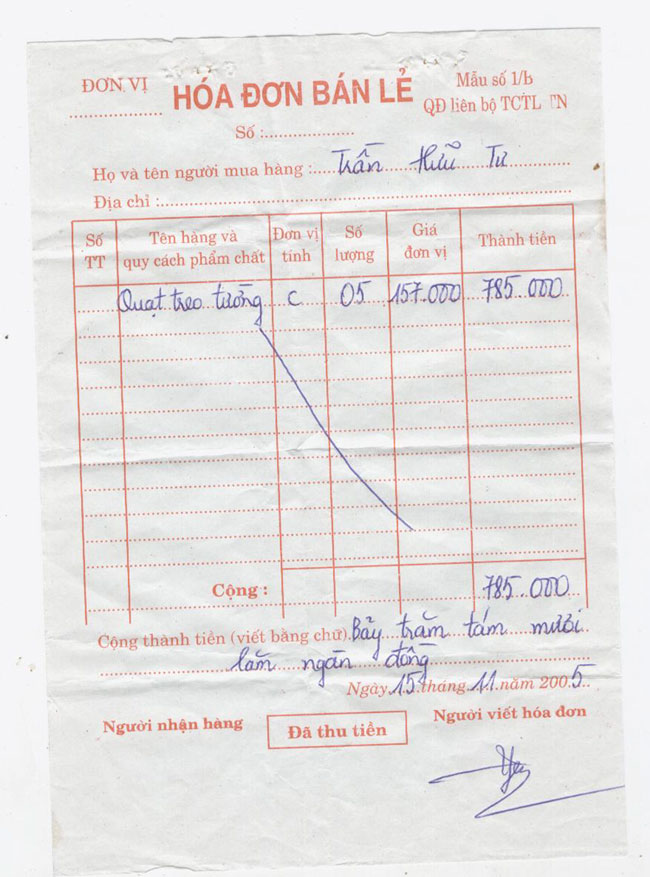 ĐƠN VỊ
HÓA ĐƠN BÁN LẺ
Mẫu số 1/b
QĐ liên bộ TCTL TN
Số :
Họ và tên người mua hàng : Trần Hữu Tư
Địa chỉ :
Số TT Tên hàng và quy cách phẩm chất Đơn vị tính Số lượng Giá đơn vị Thành tiền
Quạt treo tường c 05 157.000 785.000
Cộng : 785.000
Cộng thành tiền (viết bằng chữ) Bẩy trăm tám mươi
lăm ngàn đồng
Ngày 15 tháng 11 năm 2005
Người nhận hàng Đã thu tiền Người viết hóa đơn